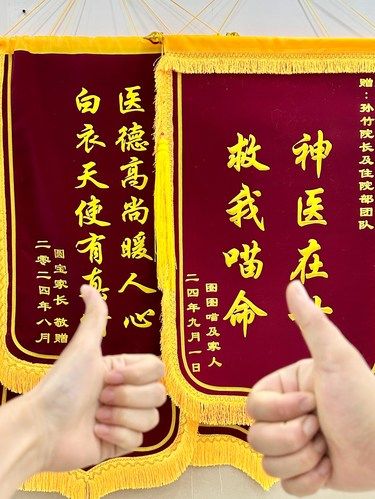 赠：孙竹院长及住院部团队
神医在
救我喵命
图图喵及家人
二四年九月一日
医德高尚暖人心
白衣天使有真
圆宝家长 敬赠
二零二四年八月